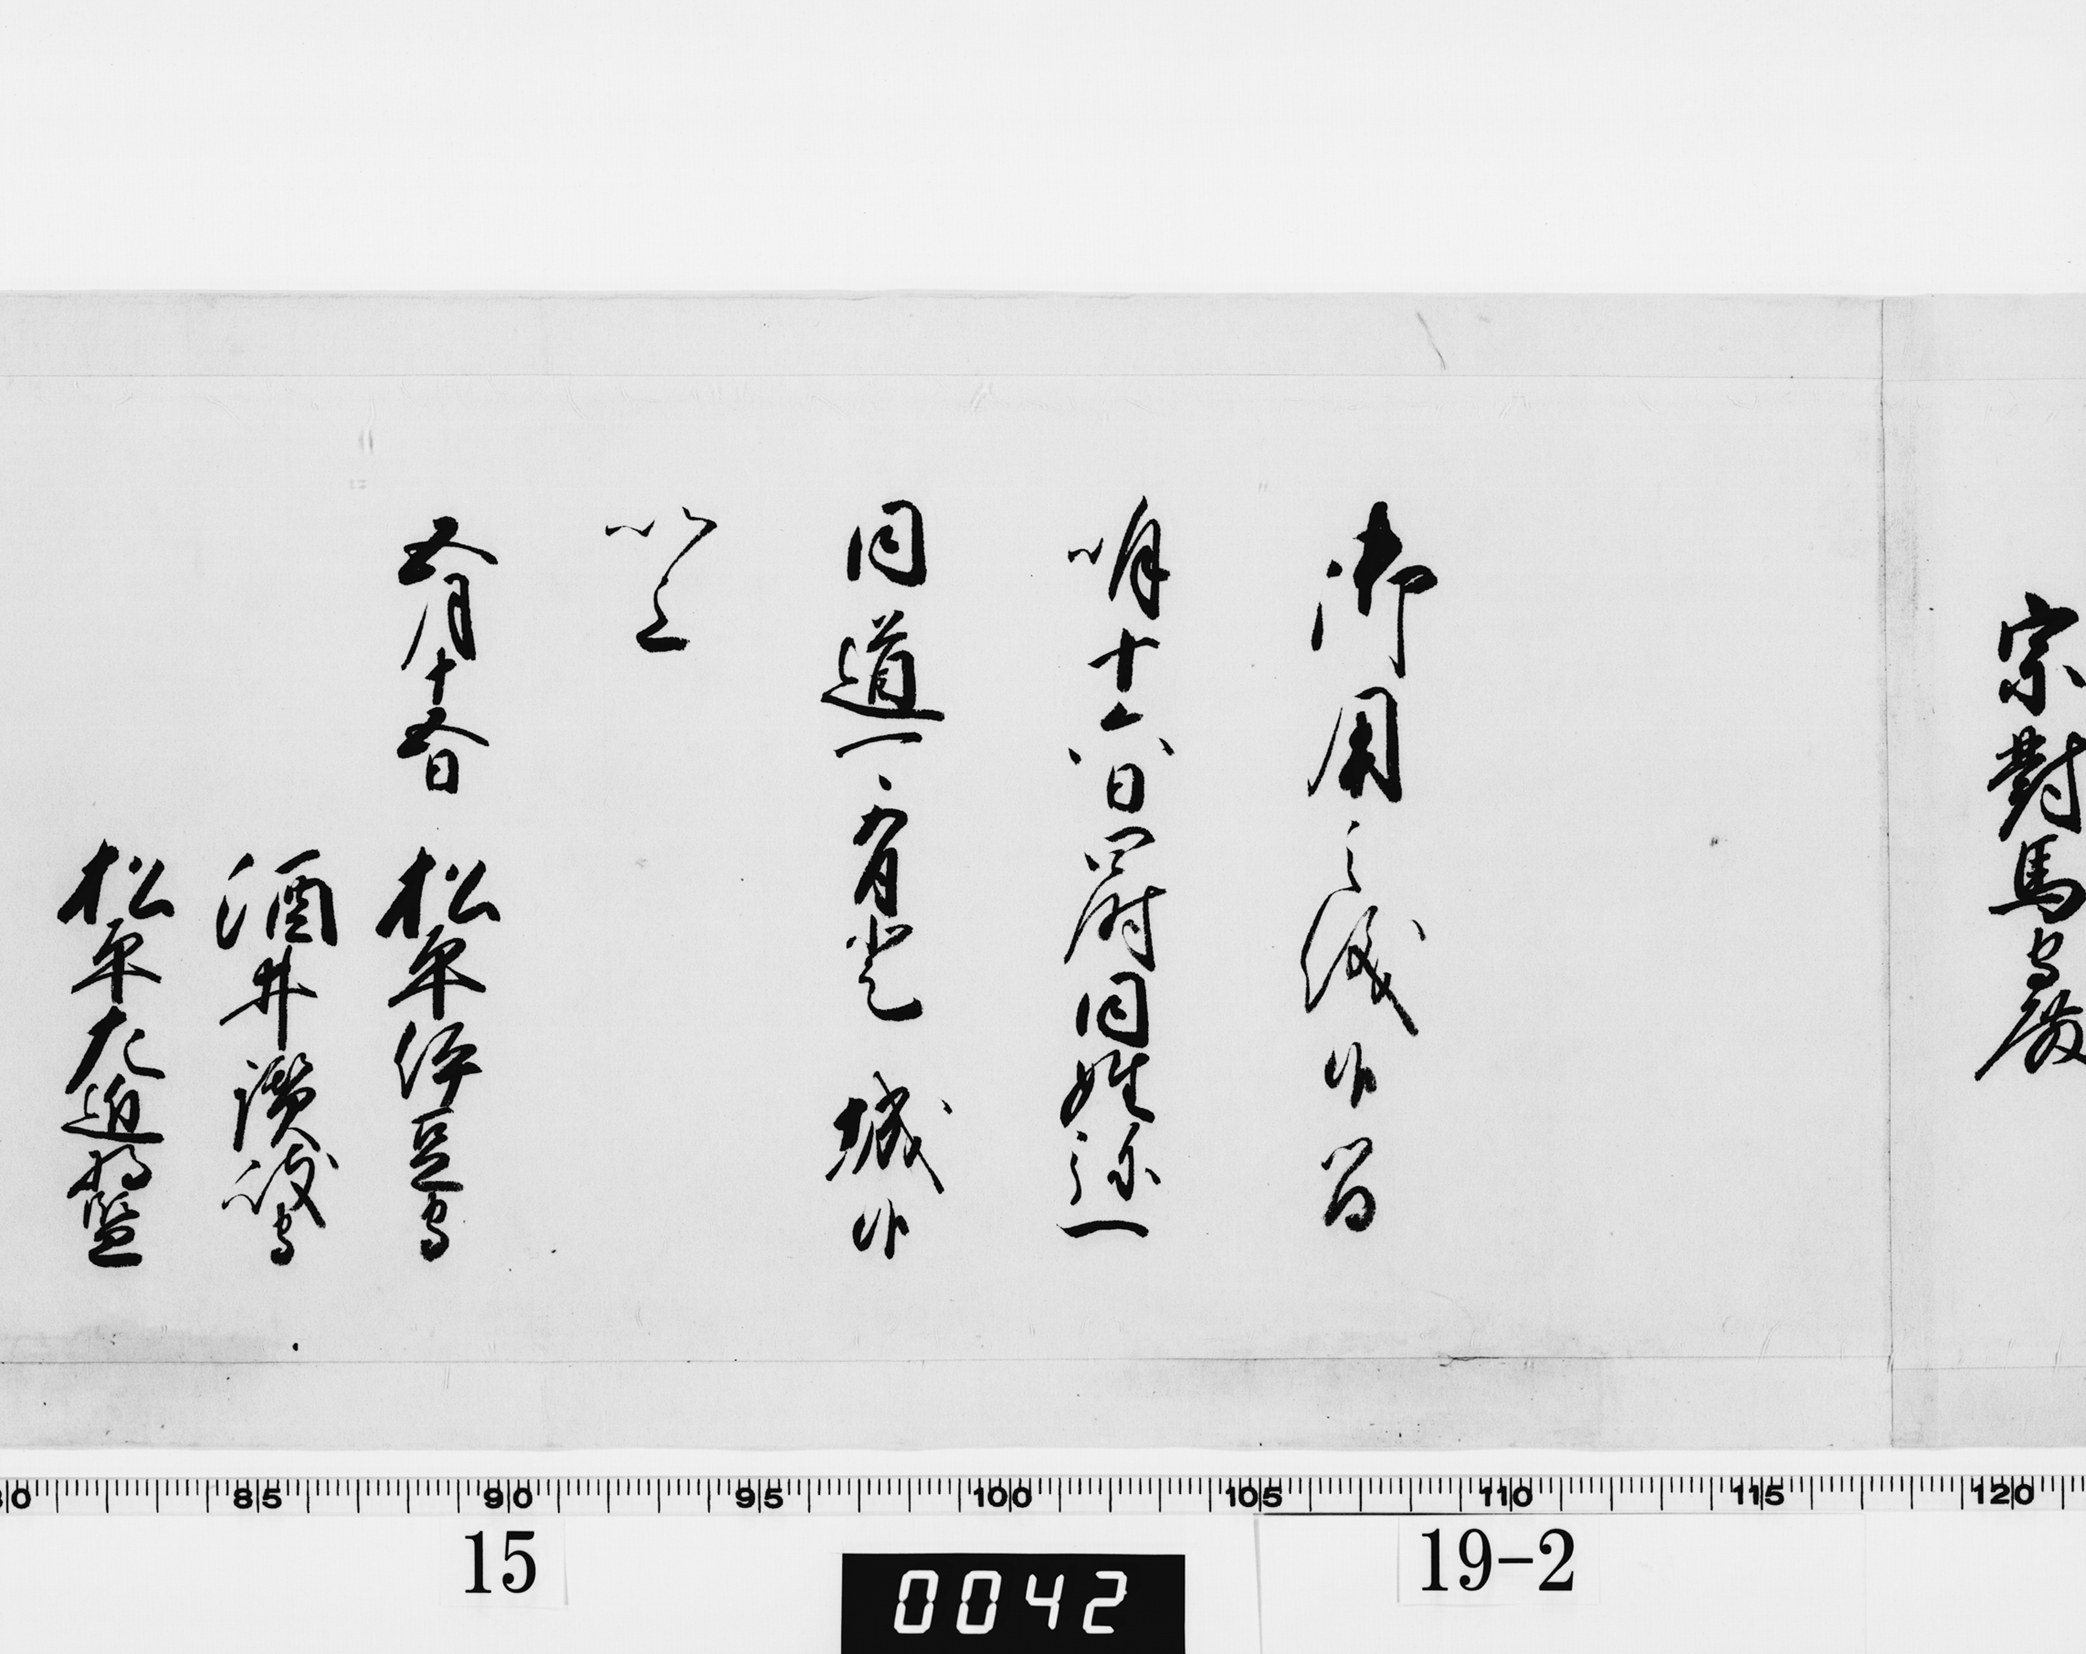 宗對馬守殿
御用之儀候間
明十六日四時同姓弥一
同道可有登 城候
以上
五月十五日 松平伊豆守
酒井讃岐守
松平左近将監
80 85 90 95 100 105 110 115 120
15
19-2
0042